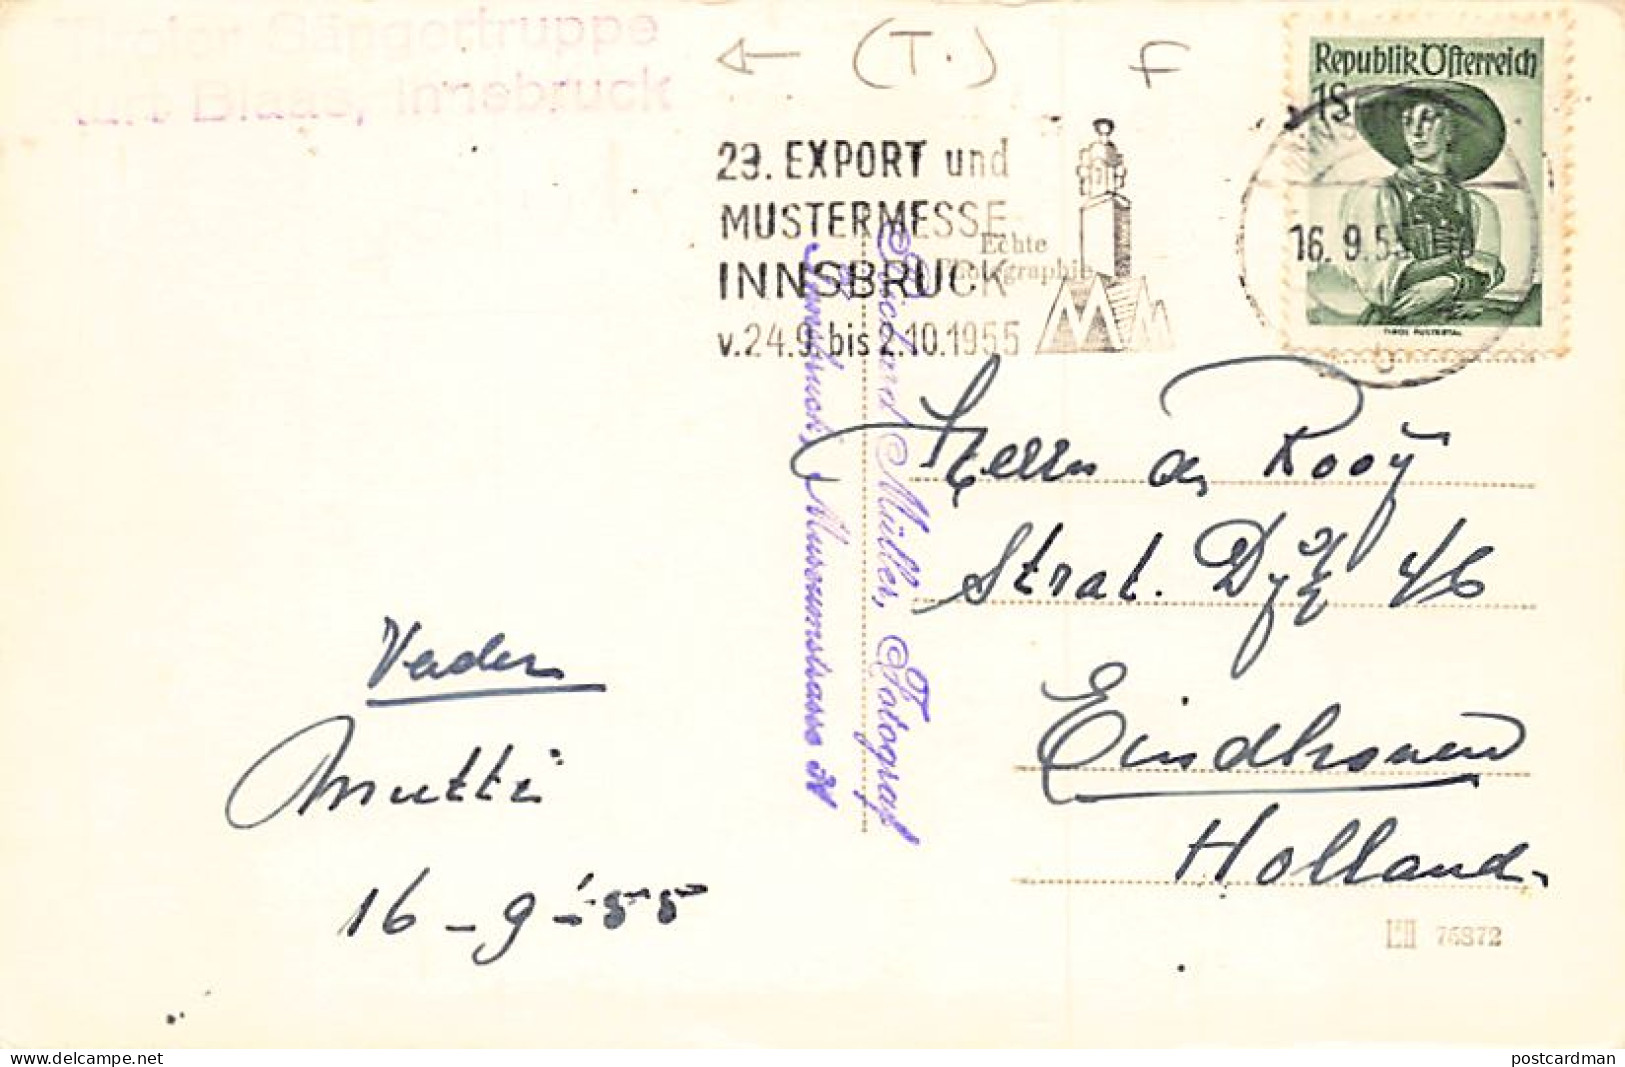 Tiroler Sängertruppe
Kurt Blaas, Innsbruck
(T.) F
23. EXPORT und
MUSTERMESSE
INNSBRUCK
v.24.9. bis 2.10.1955
Echte
Photographie
Republik Österreich
1S
TIROL PUSTERTAL
16. 9.55
Richard Müller, Fotograf
Innsbruck, Museumstrasse
Herrn de Rooy
Strat. 46
Eindhoven
Holland.
Vader
Mutti
16-9-'55
76872
www.delcampe.net
postcardman